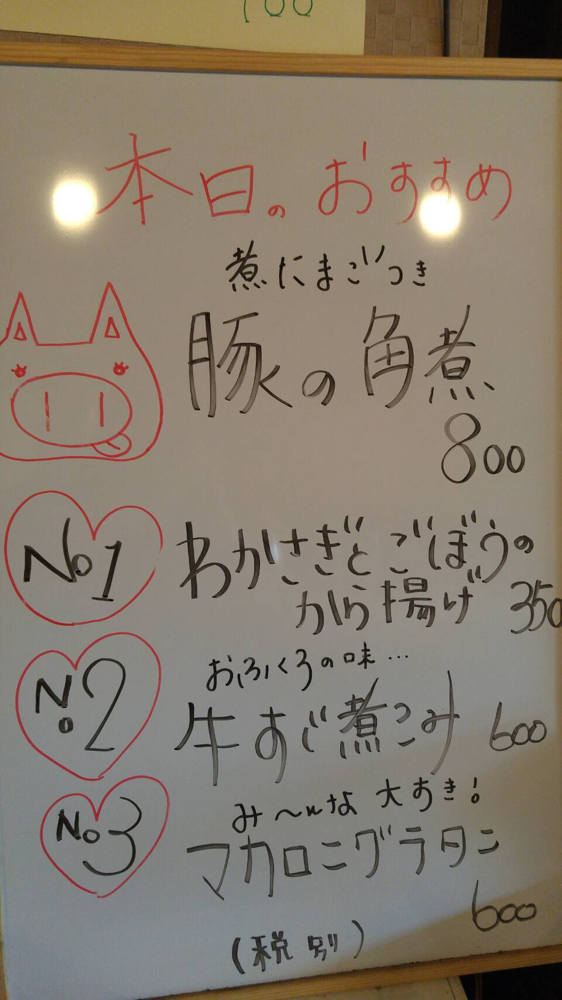 700
本日のおすすめ
煮にまごつき
豚の角煮
800
No1
わかさぎとごぼうの
から揚げ 350
おふくろの味...
No2
牛すじ煮こみ 600
み〜んな 大すき!
No3
マカロニグラタン
600
(税別)